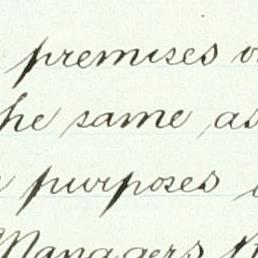 premises
the same as
purposes
Managers